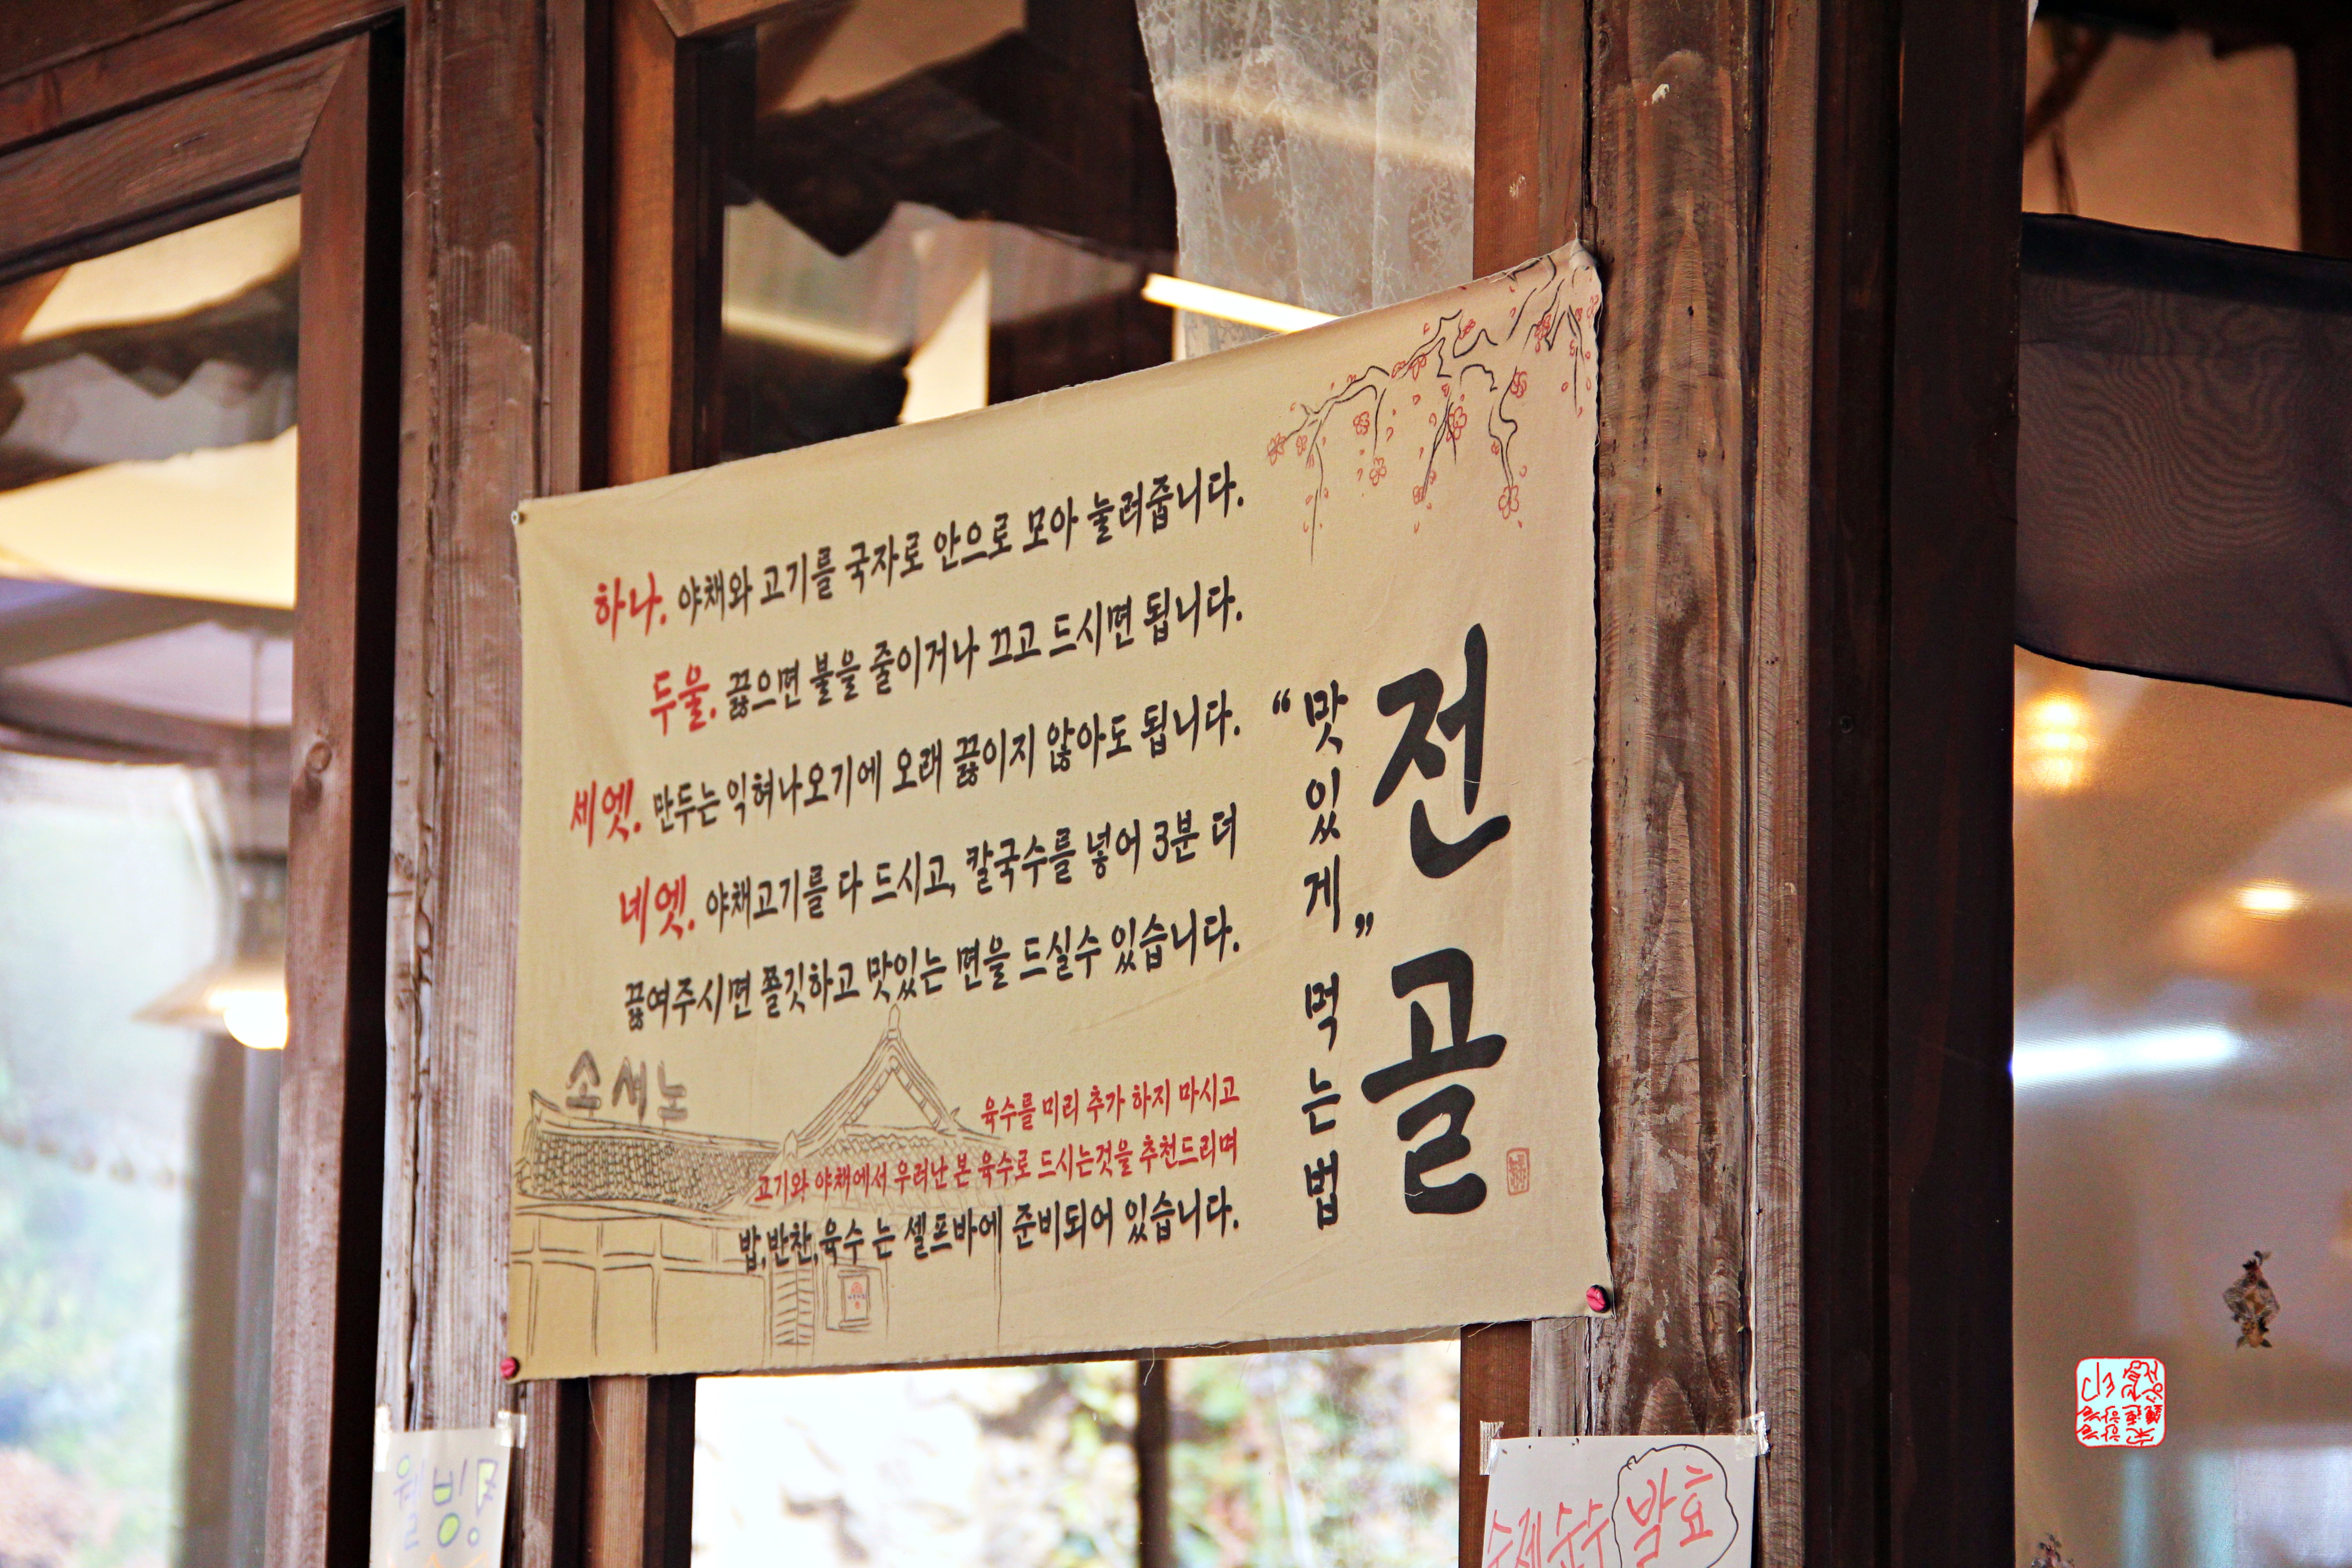 전골
“맛있게” 먹는 법
하나. 야채와 고기를 국자로 안으로 모아 눌려줍니다.
두울. 끓으면 불을 줄이거나 끄고 드시면 됩니다.
세엣. 만두는 익혀나오기에 오래 끓이지 않아도 됩니다.
네엣. 야채고기를 다 드시고, 칼국수를 넣어 3분 더
끓여주시면 쫄깃하고 맛있는 면을 드실수 있습니다.
소서노
육수를 미리 추가 하지 마시고
고기와 야채에서 우러난 본 육수로 드시는것을 추천드리며
밥,반찬,육수 는 셀프바에 준비되어 있습니다.
수제순수 발효